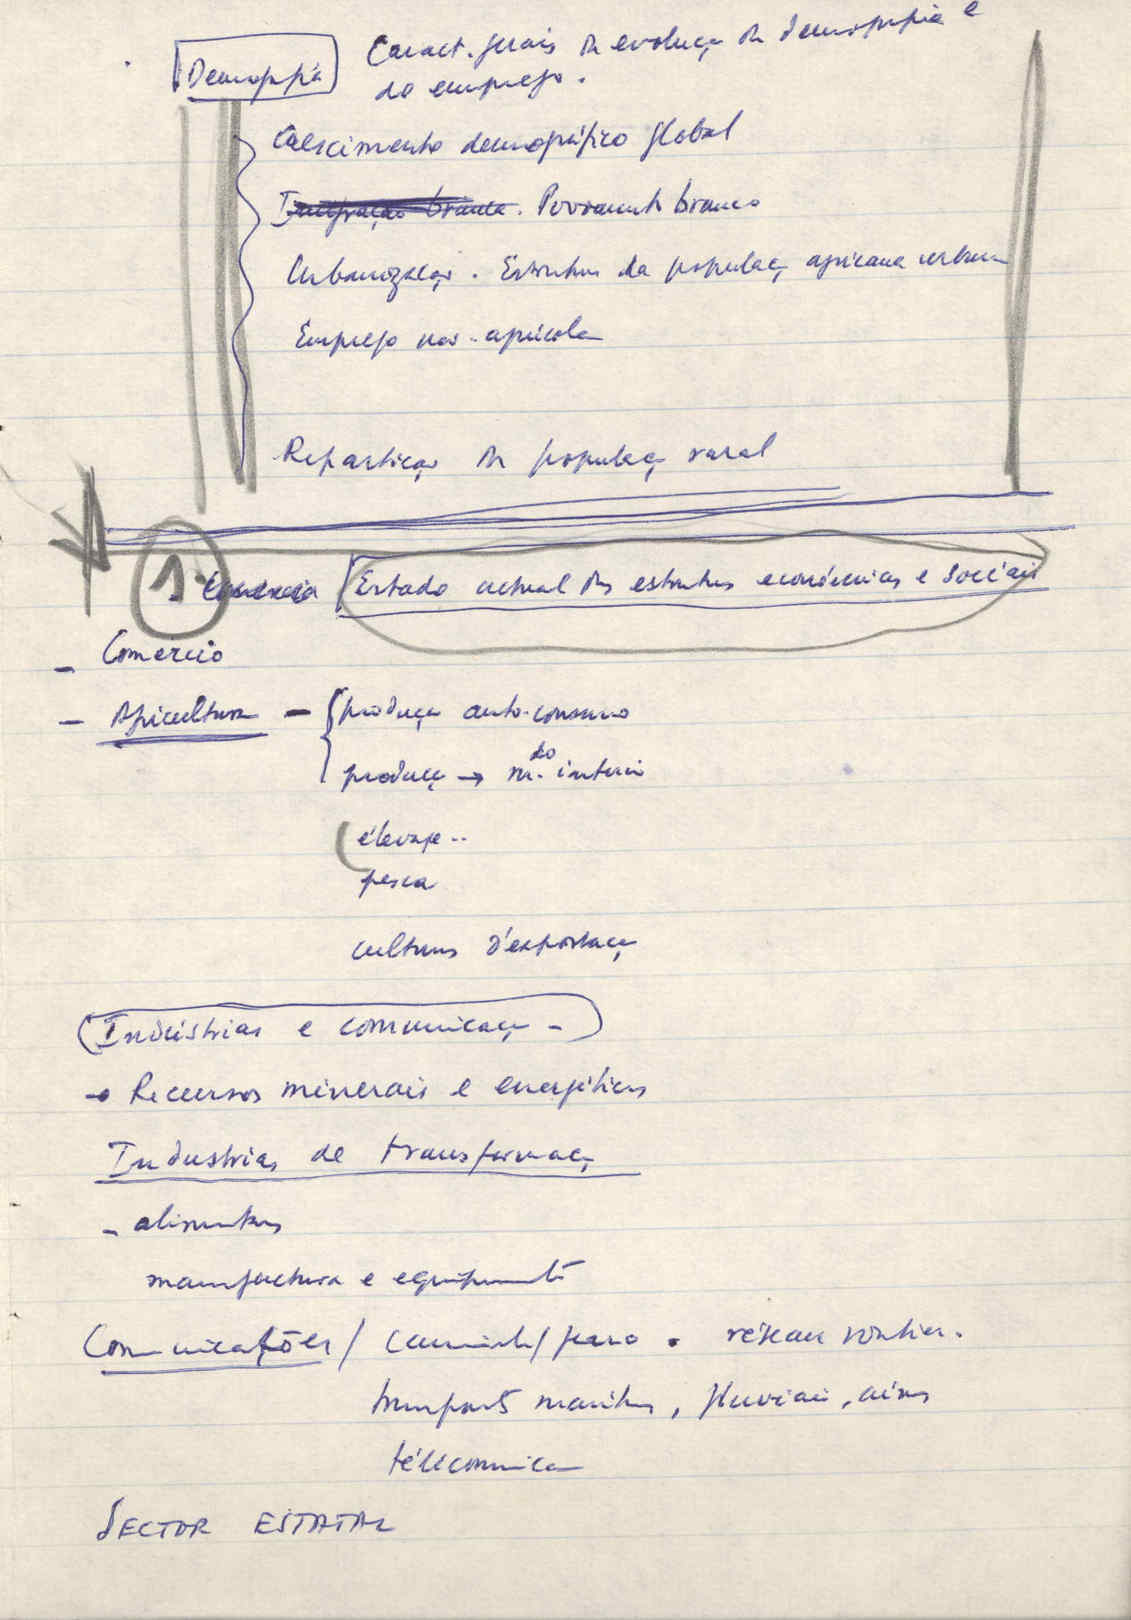 Demografia
Caract. gerais da evolução da demografia e
do emprego.
Crescimento demográfico global
Imigração branca. Povoamento branco
Urbanização. Estrutura da população africana urbana
Emprego não-agrícola
Repartição da população rural
1. Estado actual das estruturas económicas e sociais
- Comércio
- Agricultura - produção auto-consumo
produção → m.do interior
élevage ..
pesca
culturas d'exportação
Indústrias e comunicação -
→ Recursos minerais e energéticos
Industrias de transformação
- alimentares
manufactura e equipamento
Comunicações / caminh/ferro . réseau routier.
transports maritimes, fluviais, aires
télécommunica
SECTOR ESTATAL